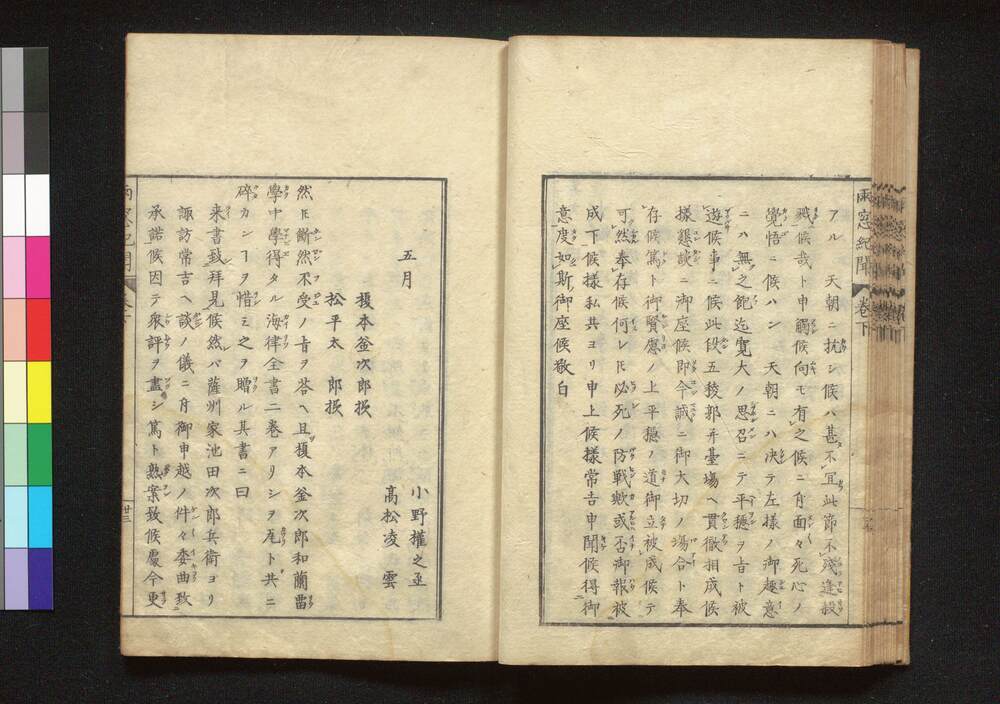 雨窓紀聞 巻下
アル 天朝ニ抗シ候ハ甚不宜此節不残逢殺
戮候哉ト申觸候向モ有之候ニ付面々死心ノ
覺悟ニ候ハン 天朝ニハ决テ左様ノ御趣意
ニハ無之飽迄寛大ノ思召ニテ平穏ヲ旨ト被
遊候事ニ候此段五稜郭并臺場ヘ貫徹相成候
様懇談ニ御座候即今誠ニ御大切ノ場合ト奉
存候篤ト御賢慮ノ上平穏ノ道御立被成候テ
可然奉存候何レ𪜈必死ノ防戦歟或否御報被
成下候様私共ヨリ申上候様常吉申聞候得御
意度如斯御座候敬白
五月
小野權之丞
高松凌雲
榎本釜次郎様
松平太郎様
然𪜈断然不受ノ旨ヲ荅ヘ且榎本釜次郎和蘭畱
學中學得タル海律全書二巻アリシヲ烏ト共ニ
碎カンヿヲ惜ミ之ヲ贈ル其書ニ曰
来書致拜見候然バ薩州家池田次郎兵衛ヨリ
諏訪常吉ヘ談ノ儀ニ付御申越ノ件々委曲致
承諾候因テ衆評ヲ盡シ篤ト熟案致候處今更
雨窓紀聞
廿三